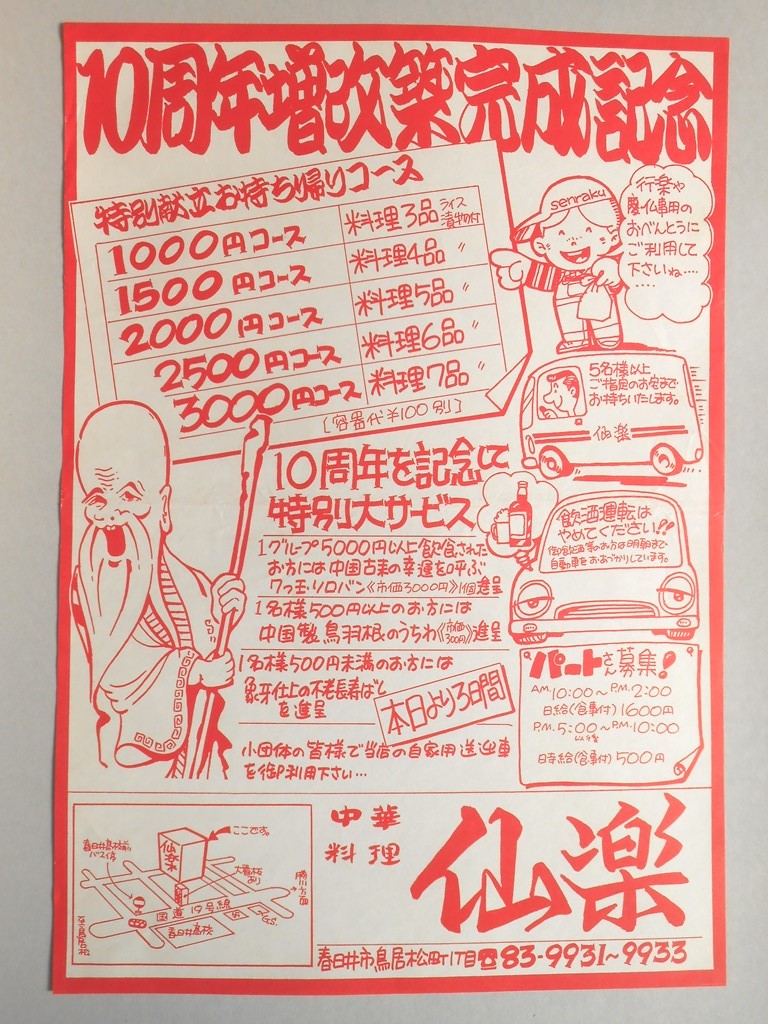 10周年増改築完成記念
特別献立お持ち帰りコース
1000円コース 料理3品 ライス漬物付
1500円コース 料理4品 〃
2000円コース 料理5品 〃
2500円コース 料理6品 〃
3000円コース 料理7品 〃
[容器代¥100別]
senraku
行楽や
慶仏事用の
おべんとうに
ご利用して
下さいね……
……
5名様以上
ご指定のお宅まで
お持ちいたします。
仙楽
10周年を記念して
特別大サービス
1グループ5000円以上飲食された
お方には中国古来の幸運を呼ぶ
7っ玉ソロバン《市価3000円》1個進呈
1名様500円以上のお方には
中国製鳥羽根のうちわ《市価300円》進呈
1名様500円未満のお方には
象牙仕上の不老長寿ばしを進呈
本日より3日間
小団体の皆様で当店の自家用送迎車
を御利用下さい…
飲酒運転は
やめてください!!
御飲酒等のお方は明朝まで
自動車をおあづかりしています。
パートさん募集!
A.M.10:00~P.M.2:00
日給(食事付)1600円
P.M.5:00~P.M.10:00
以後
時給(食事付)500円
ここです。
仙楽
春日井高校前
バス停
大看板
あり
勝川方面
国道19号線
G.S.
春日井高校
至鳥居松
中華
料理
仙楽
春日井市鳥居松町1丁目☎83-9931~9933